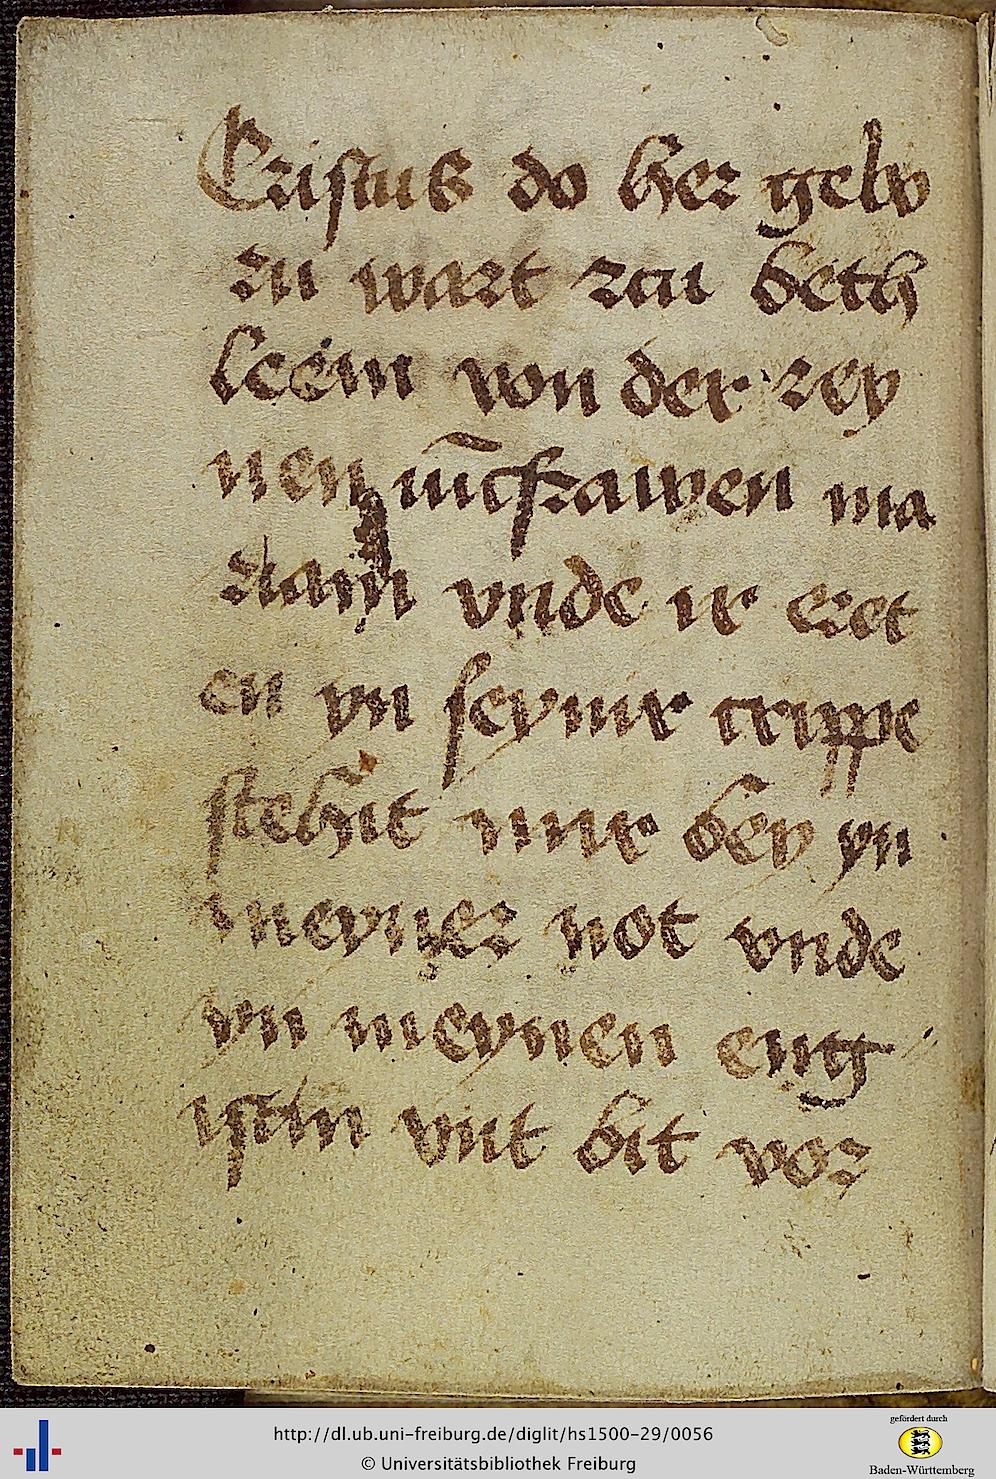 Cristus do her gebo
rn wart zcu beth
leem von der rey
nen iūcfrawen ma
riam vnde ir eret
en yn seynir crippe
stehit mir bey yn
meyner not vnde
yn meynen eng
istin vnt bit vor
http://dl.ub.uni-freiburg.de/diglit/hs1500-29/0056
© Universitätsbibliothek Freiburg
gefördert durch
Baden-Württemberg